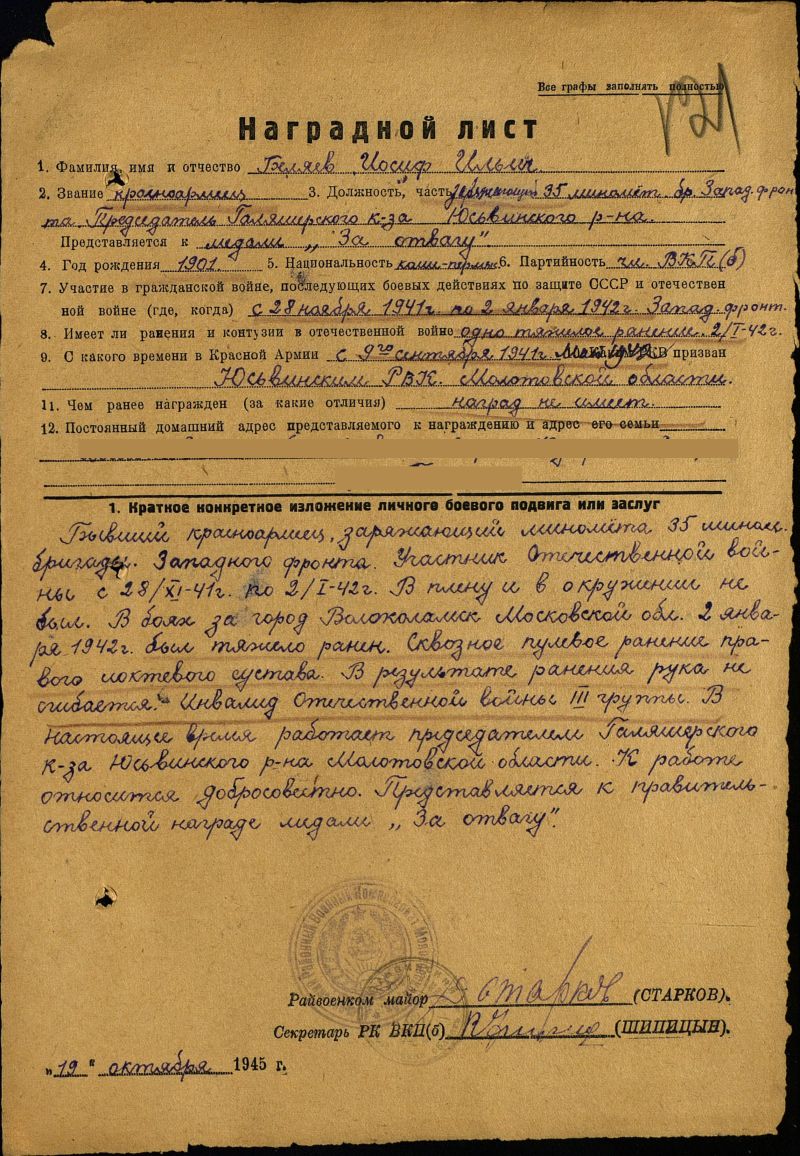 Все графы заполнять полностью
Наградной лист
1. Фамилия, имя и отчество Беляев Иосиф Ильич
2. Звание красноармеец 3. Должность, часть заряжающий 35 миномёт. бр. Запад. фрон-
та. Председатель Галяшерского к-за Юсьвинского р-на.
Представляется к медали „За отвагу".
4. Год рождения 1901. 5. Национальность коми-перм. 6. Партийность чл. ВКП(б)
7. Участие в гражданской войне, последующих боевых действиях по защите СССР и отечествен
ной войне (где, когда) с 28 ноября 1941г. по 2 января 1942г. Запад. фронт.
8. Имеет ли ранения и контузии в отечественной войне одно тяжелое ранение. 2/I-42г.
9. С какого времени в Красной Армии с 9го сентября 1941г. призван
Юсьвинским РВК. Молотовской области.
11. Чем ранее награжден (за какие отличия) наград не имеет.
12. Постоянный домашний адрес представляемого к награждению и адрес его семьи
1. Краткое конкретное изложение личного боевого подвига или заслуг
Бывший красноармеец, заряжающий миномёта 35 мином.
бригады. Западного фронта. Участник Отечественной вой-
ны с 28/XI-41г. по 2/I-42г. В плену и в окружении не
был. В боях за город Волоколамск Московской обл. 2 янва-
ря 1942г. был тяжело ранен. Сквозное пулевое ранение пра-
вого локтевого сустава. В результате ранения рука не
сгибается. Инвалид Отечественной войны III группы. В
настоящее время работает председателем Галяшерского
к-за Юсьвинского р-на Молотовской области. К работе
относится добросовестно. Представляется к правитель-
ственной награде медали „За отвагу".
Районный Военный Комиссариат
Райвоенком майор Старков (СТАРКОВ).
Секретарь РК ВКП(б) (ШИПИЦЫН).
„19" октября 1945 г.